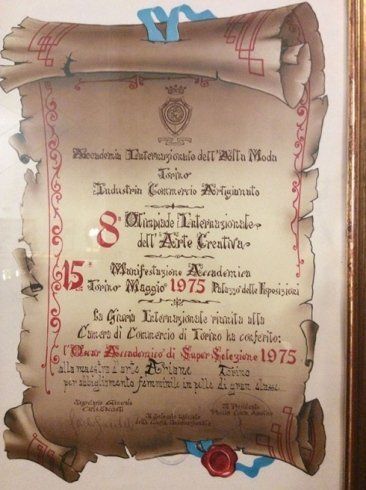 Accademia Internazionale dell'Alta Moda
Torino
Industria Commercio Artigianato
8ª Olimpiade Internazionale
dell'Arte Creativa
15ª Manifestazione Accademica
Torino Maggio 1975 Palazzo delle Esposizioni
La Giuria Internazionale riunita alla
Camera di Commercio di Torino ha conferito:
l'Oscar Accademico di Super Selezione 1975
alla maestra d'arte Torino
per abbigliamento femminile in pelle di gran classe
Segretario Generale Il Presidente